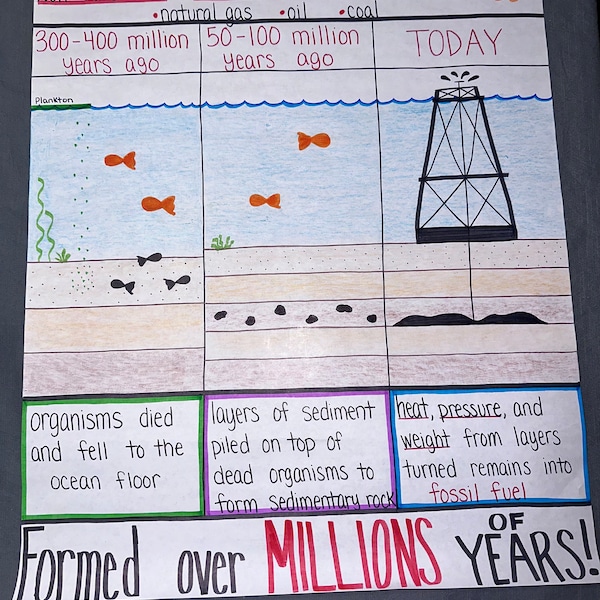 • natural gas • oil • coal
300-400 million
years ago
50-100 million
years ago
TODAY
Plankton
organisms died
and fell to the
ocean floor
layers of sediment
piled on top of
dead organisms to
form sedimentary rock
heat, pressure, and
weight from layers
turned remains into
fossil fuel
Formed over MILLIONS OF YEARS!